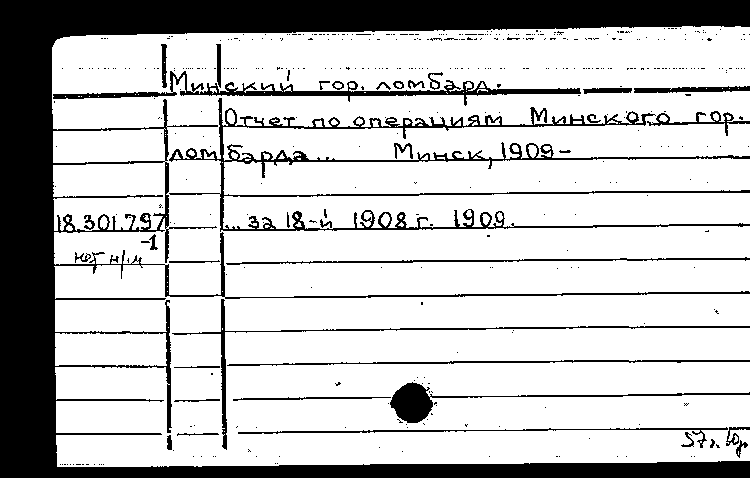 Минский гор. ломбард.
Отчет по операциям Минского гор.
ломбарда... Минск, 1909-
18.301.7.97 ... за 18-й 1908 г. 1909.
-1
нет н/м